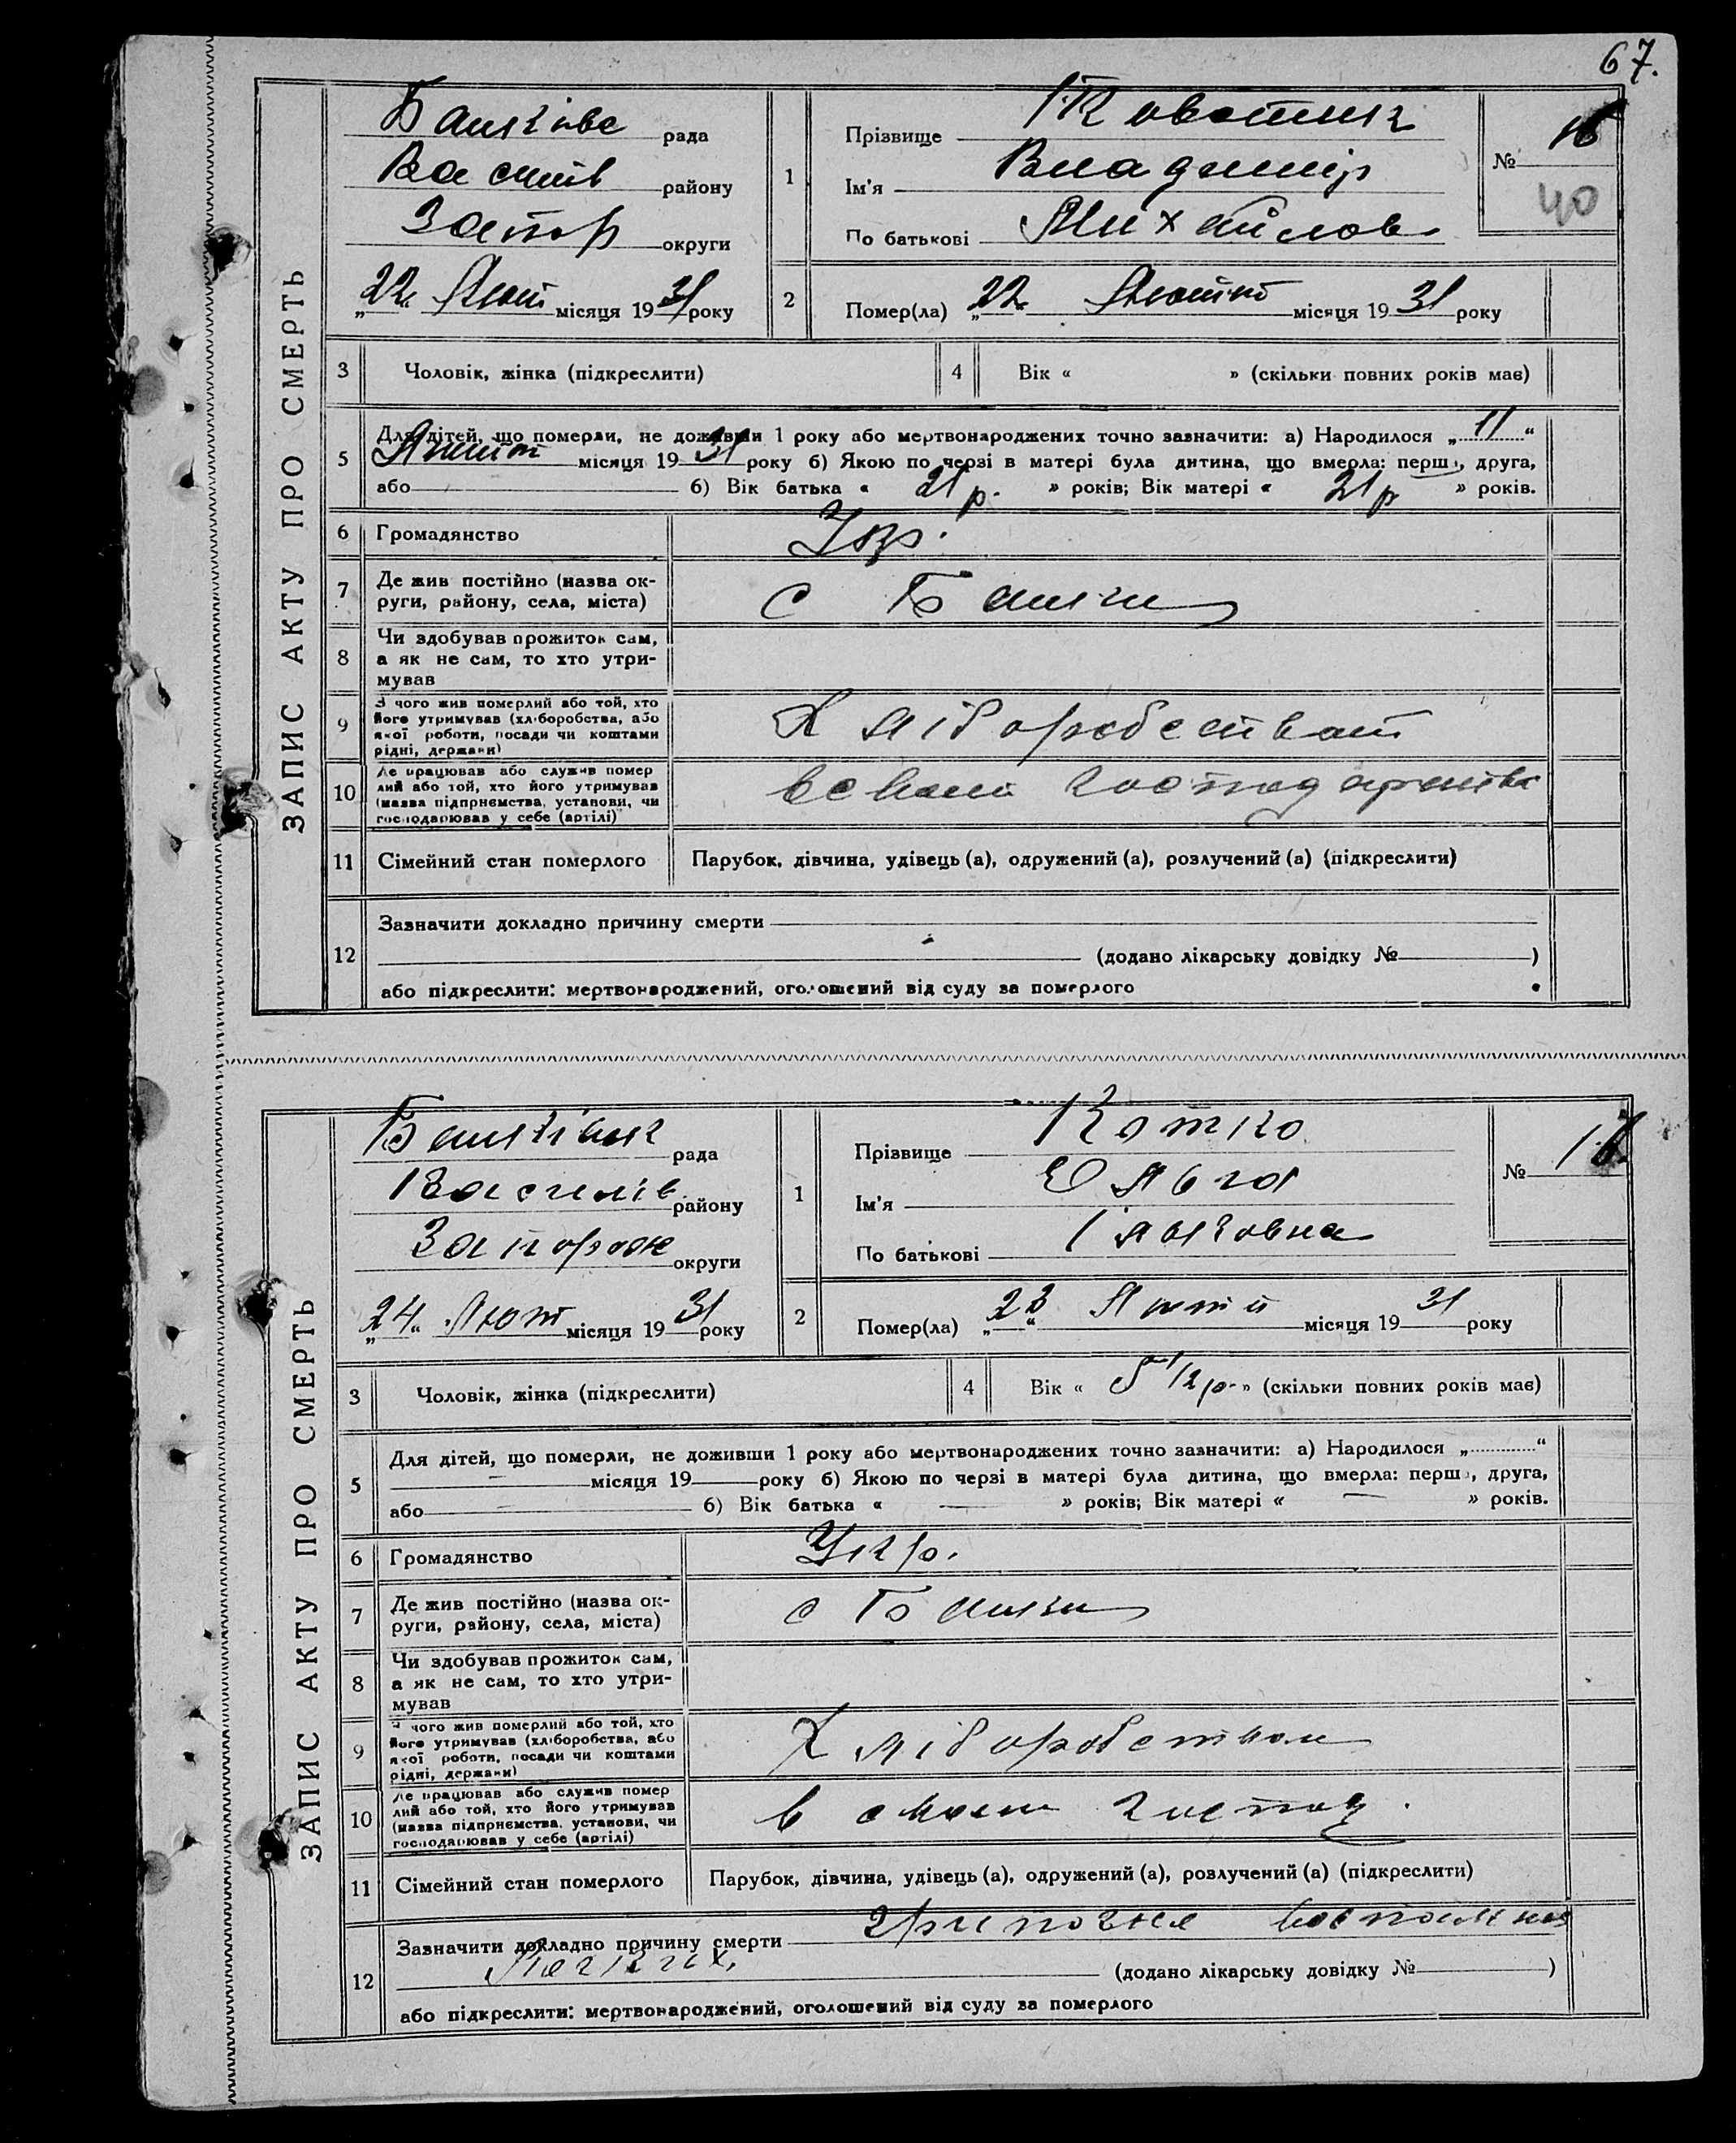 67.
ЗАПИС АКТУ ПРО СМЕРТЬ
рада
району
Запор округи
„22“ Лют місяця 1931 року
1
Прізвище
Ім'я Владимир
По батькові Михайлов
№ 16
40
2
Помер(ла) „22“ Лютого місяця 1931 року
3 Чоловік, жінка (підкреслити)
4 Вік « » (скільки повних років має)
5
Для дітей, що померли, не доживши 1 року або мертвонароджених точно зазначити: а) Народилося „11“
місяця 1931 року б) Якою по черзі в матері була дитина, що вмерла: перша, друга,
або б) Вік батька « 21 р. » років; Вік матері « 21 р » років.
6 Громадянство Укр.
7 Де жив постійно (назва ок-
руги, району, села, міста) с Башки
8 Чи здобував прожиток сам,
а як не сам, то хто утри-
мував
9 З чого жив померлий або той, хто
його утримував (хліборобства, або
якої роботи, посади чи коштами
рідні, держави)
10 Де працював або служив помер
лий або той, хто його утримував
(назва підприємства, установи, чи
господарював у себе (артілі)
11 Сімейний стан померлого Парубок, дівчина, удівець (а), одружений (а), розлучений (а) (підкреслити)
12
Зазначити докладно причину смерти
(додано лікарську довідку № )
або підкреслити: мертвонароджений, оголошений від суду за померлого
ЗАПИС АКТУ ПРО СМЕРТЬ
рада
Василів району
Запорож округи
„24“ Лют місяця 1931 року
1
Прізвище Котко
Ім'я Ольга
По батькові
№
2
Помер(ла) „23“ місяця 1931 року
3 Чоловік, жінка (підкреслити)
4 Вік « 5 1/2 р. » (скільки повних років має)
5
Для дітей, що померли, не доживши 1 року або мертвонароджених точно зазначити: а) Народилося „ “
— місяця 19 року б) Якою по черзі в матері була дитина, що вмерла: перша, друга,
або — б) Вік батька « — » років; Вік матері « — » років.
6 Громадянство Укр.
7 Де жив постійно (назва ок-
руги, району, села, міста) с Башки
8 Чи здобував прожиток сам,
а як не сам, то хто утри-
мував
9 З чого жив померлий або той, хто
його утримував (хліборобства, або
якої роботи, посади чи коштами
рідні, держави) Хліборобством
10 Де працював або служив помер
лий або той, хто його утримував
(назва підприємства, установи, чи
господарював у себе (артілі) в своем господ.
11 Сімейний стан померлого Парубок, дівчина, удівець (а), одружений (а), розлучений (а) (підкреслити)
12
Зазначити докладно причину смерти
Легких,
(додано лікарську довідку № )
або підкреслити: мертвонароджений, оголошений від суду за померлого